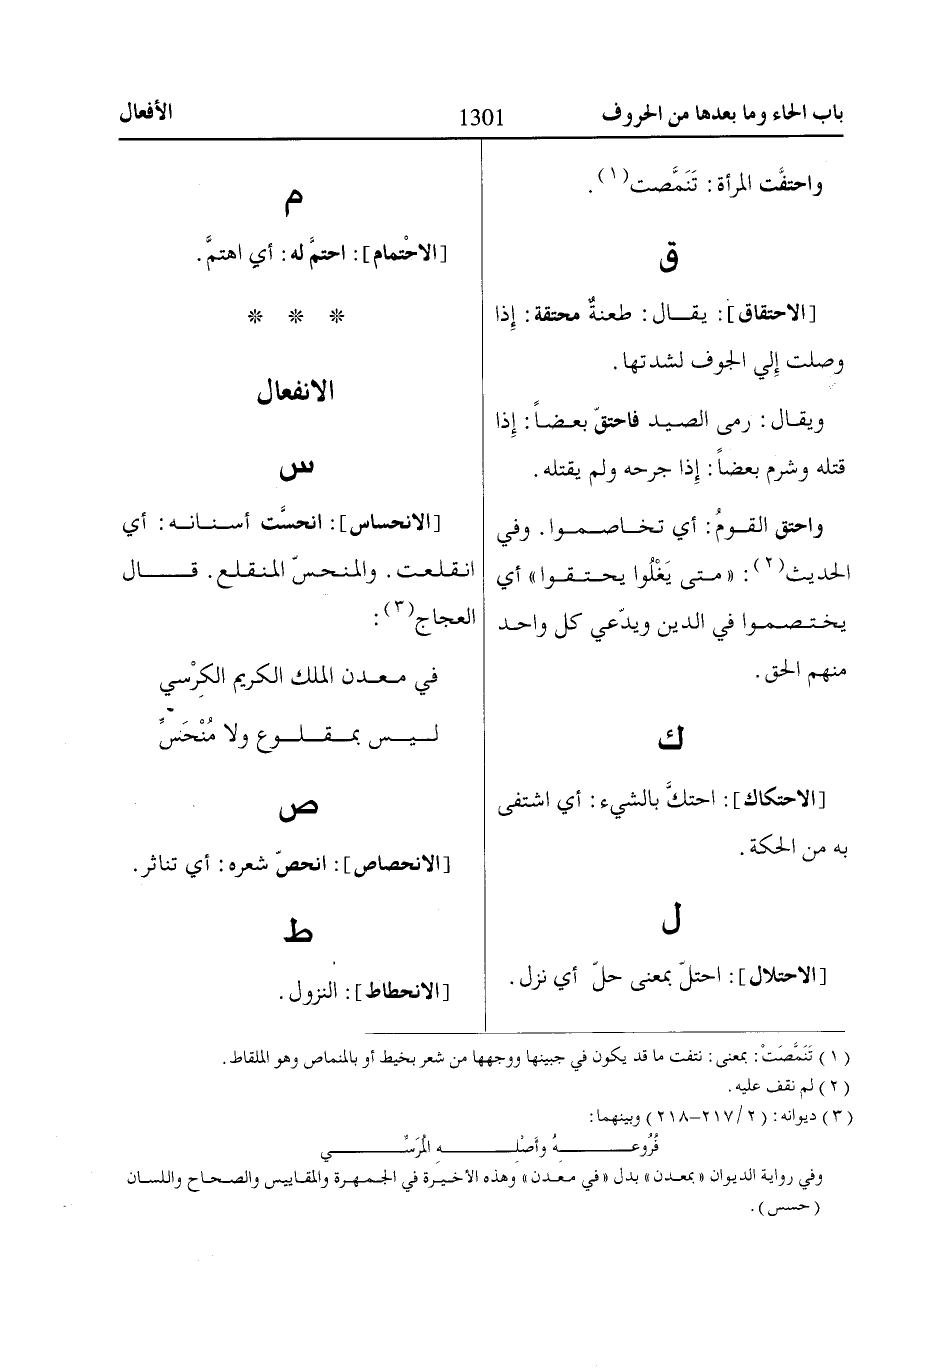 باب الحاء وما بعدها من الحروف 1301 الأفعال
واحتفَّت المرأة: تَنَمَّصت(١).
ق
[الاحتقاق]: يقال: طعنةٌ محتقة: إذا
وصلت إلي الجوف لشدتها.
ويقال: رمى الصيد فاحتقّ بعضاً: إذا
قتله وشرم بعضاً: إذا جرحه ولم يقتله.
واحتق القومُ: أي تخاصموا. وفي
الحديث(٢): «متى يَغْلُوا يحتقوا» أي
يختصموا في الدين ويدّعي كل واحد
منهم الحق.
ك
[الاحتكاك]: احتكَّ بالشيء: أي اشتفى
به من الحكة.
ل
[الاحتلال]: احتلّ بمعنى حلّ أي نزل.
م
[الاحْتمام]: احتمَّ له: أي اهتمَّ.
* * *
الانفعال
س
[الانحساس]: انحسَّت أسنانه: أي
انقلعت. والمنحسّ المنقلع. قال
العجاج(٣):
في معدن الملك الكريم الكِرْسي
ليس بمقلوع ولا مُنْحَسِّ
ص
[الانحصاص]: انحصّ شعره: أي تناثر.
ط
[الانحطاط]: النزول.
(١) تَنَمَّصَتْ: بمعنى: نتفت ما قد يكون في جبينها ووجهها من شعر بخيط أو بالمنماص وهو الملقاط.
(٢) لم نقف عليه.
(٣) ديوانه: (٢/٢١٧-٢١٨) وبينهما:
فُرُوعِهُ وأَصْلِهِ المُرَسِّي
وفي رواية الديوان «بمعدن» بدل «في معدن» وهذه الأخيرة في الجمهرة والمقاييس والصحاح واللسان
(حسس).